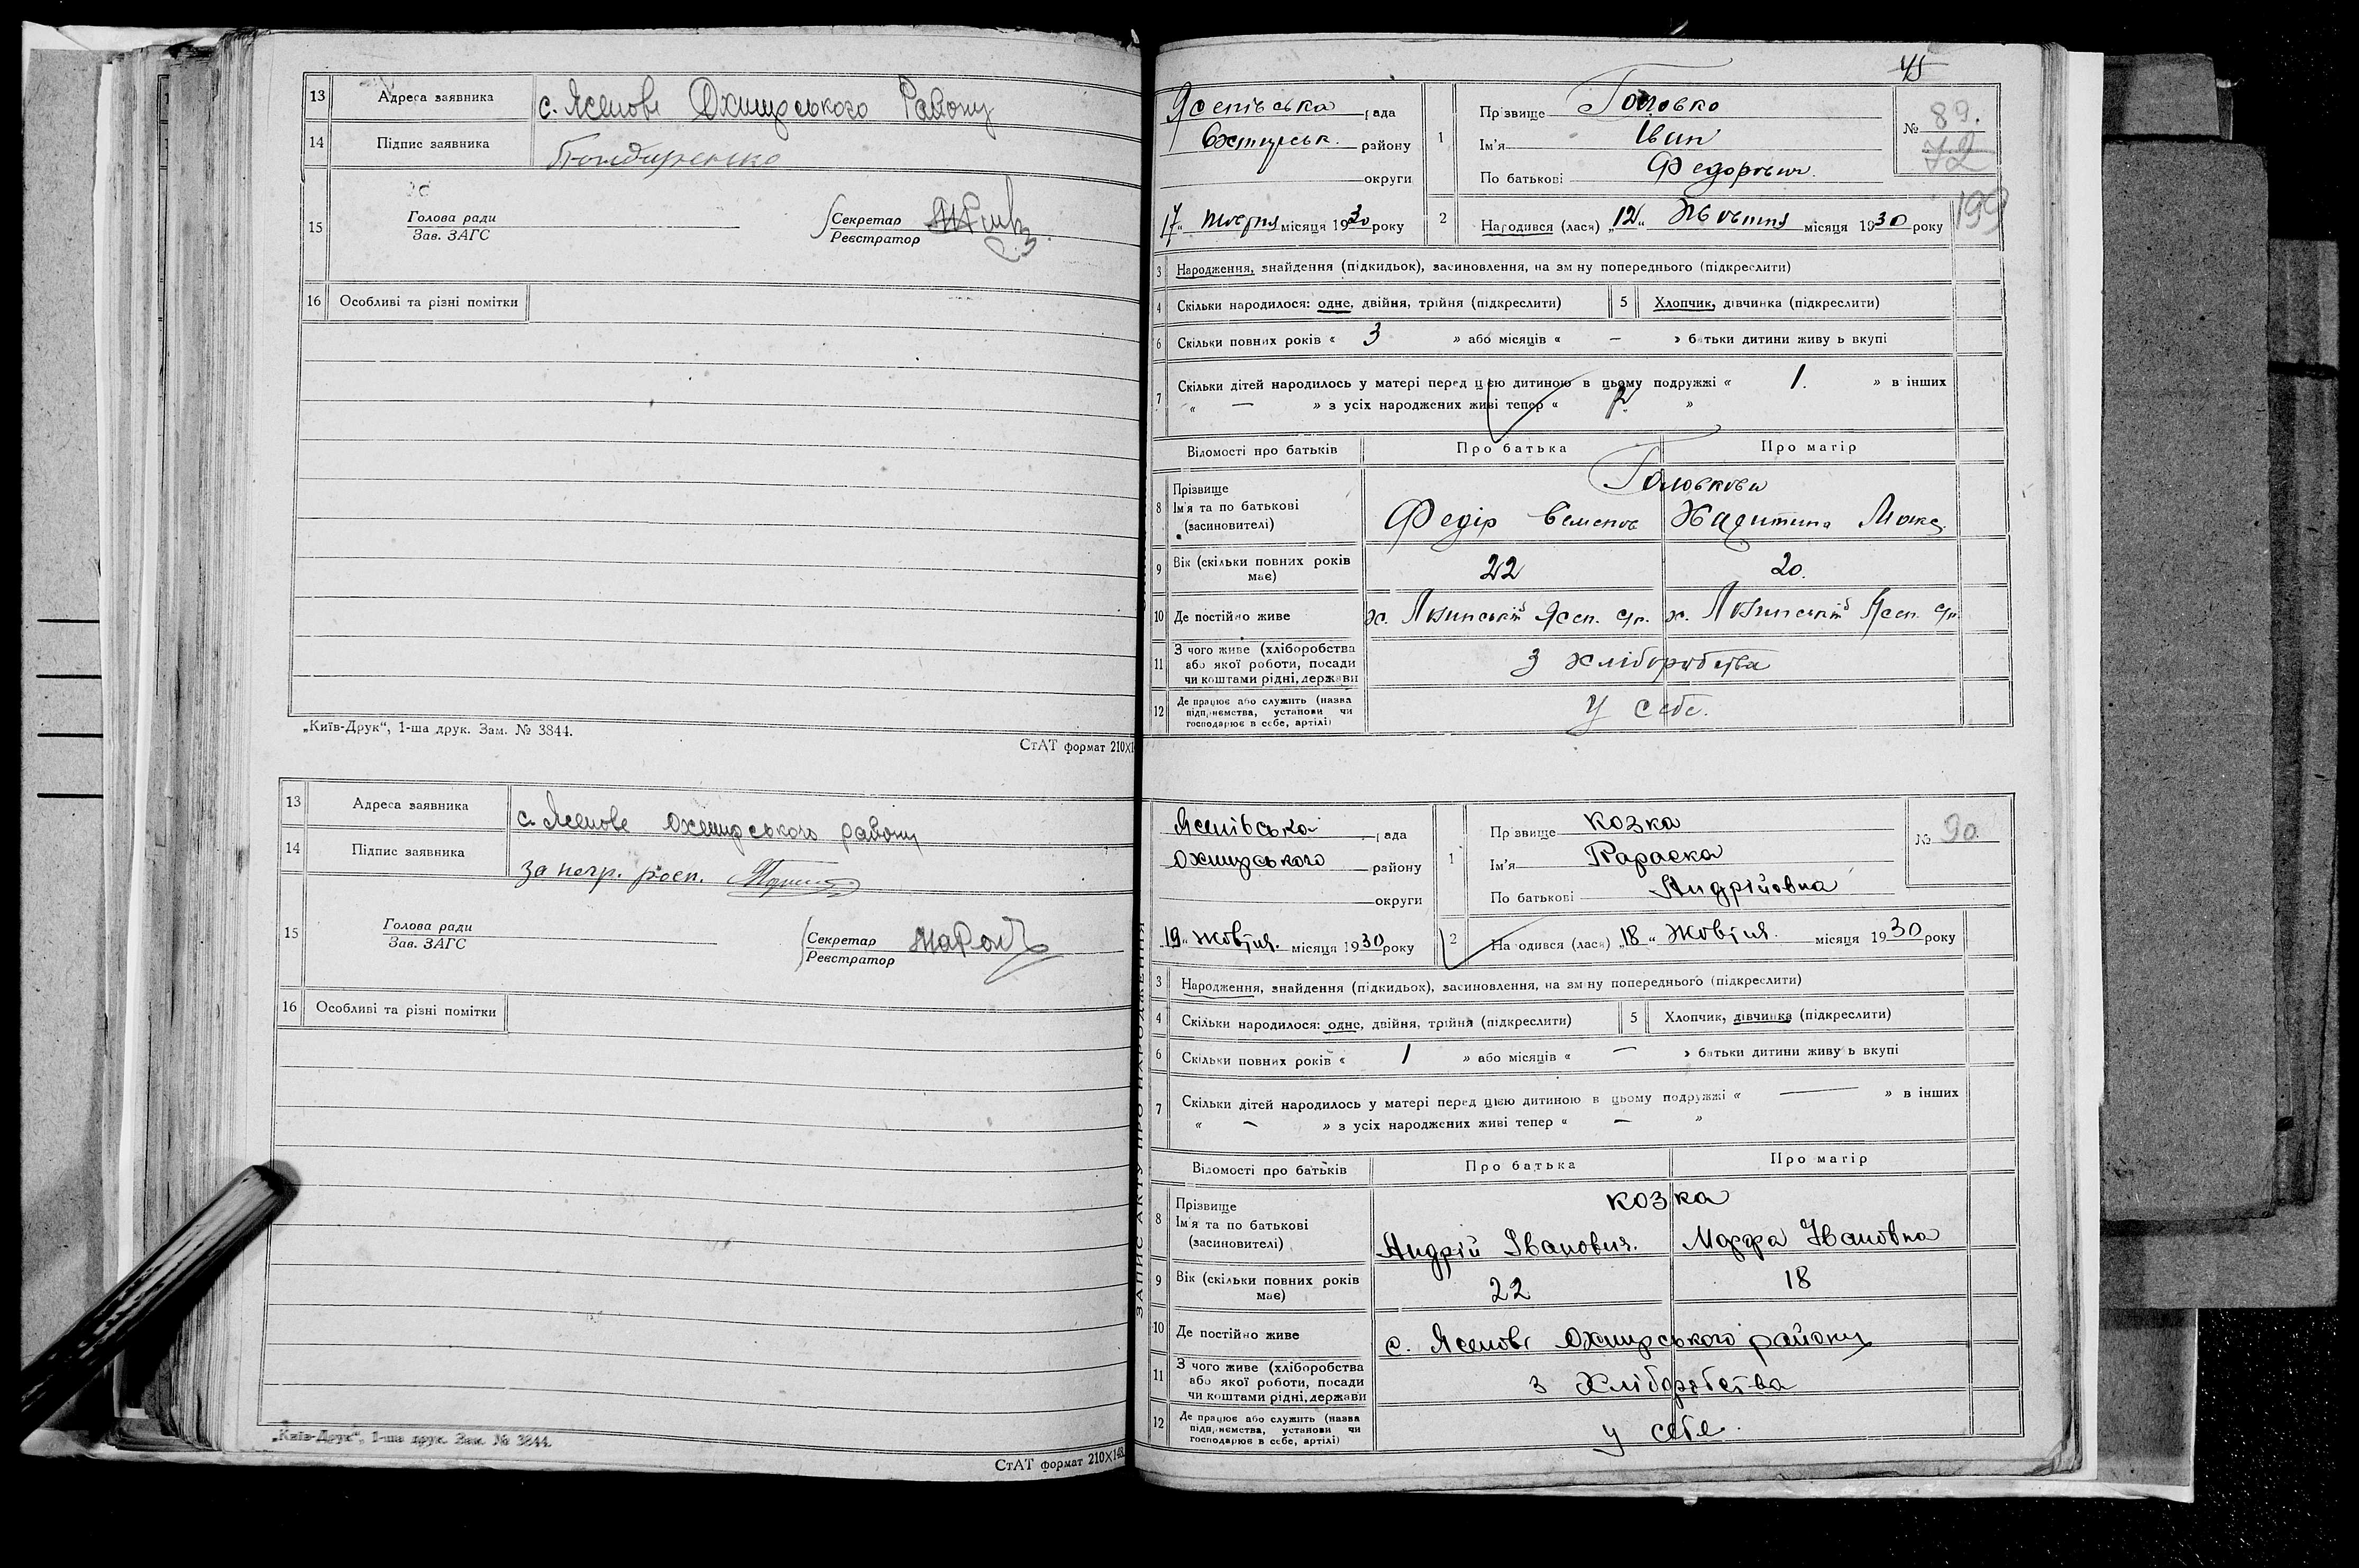 13 Адреса заявника с. Ясенове Охтирського Району
14 Підпис заявника Бондаренко
15 Голова ради
Зав. ЗАГС
Секретар
Реєстратор
16 Особливі та різні помітки
„Київ-Друк“, 1-ша друк. Зам. № 3844.
СтАТ формат 210X1
13 Адреса заявника с. Ясенове Охтирського району
14 Підпис заявника за негр. росп.
15 Голова ради
Зав. ЗАГС
Секретар
Реєстратор
16 Особливі та різні помітки
„Київ-Друк“, 1-ша друк. Зам. № 3844.
СтАТ формат 210X148
45
Ясенівська рада
Охтирськ. району
округи
17 „ жовтня місяця 1930 року
1 Прізвище Головко
Ім'я Іван
По батькові Федорович
№ 89.
72
199
2 Народився (лася) „12“ Жовтня місяця 1930 року
3 Народження, знайдення (підкидьок), засиновлення, на зміну попереднього (підкреслити)
4 Скільки народилося: одне, двійня, трійня (підкреслити) 5 Хлопчик, дівчинка (підкреслити)
6 Скільки повних років « 3 » або місяців « — » батьки дитини живуть вкупі
7 Скільки дітей народилось у матері перед цією дитиною в цьому подружжі « 1. » в інших
« — » з усіх народжених живі тепер « 2 »
Відомості про батьків Про батька Про матір
8 Прізвище
Ім'я та по батькові
(засиновителі)
Головкови
Федір Семенов
9 Вік (скільки повних років має) 22 20.
10 Де постійно живе
11 З чого живе (хліборобства або якої роботи, посади чи коштами рідні, держави З хліборобства
12 Де працює або служить (назва підприємства, установи чи господарює в себе, артілі) У себе.
ЗАПИС АКТУ ПРО НАРОДЖЕННЯ
Ясенівська рада
Охтирського району
округи
19 „ жовтня. місяця 1930 року
1 Прізвище Козка
Ім'я Параска
По батькові Андрійовна
№ 90.
2 Народився (лася) „18“ Жовтня. місяця 1930 року
3 Народження, знайдення (підкидьок), засиновлення, на зміну попереднього (підкреслити)
4 Скільки народилося: одне, двійня, трійня (підкреслити) 5 Хлопчик, дівчинка (підкреслити)
6 Скільки повних років « 1 » або місяців « — » батьки дитини живуть вкупі
7 Скільки дітей народилось у матері перед цією дитиною в цьому подружжі « — » в інших
« — » з усіх народжених живі тепер « — »
Відомості про батьків Про батька Про матір
8 Прізвище
Ім'я та по батькові
(засиновителі)
Козка
Андрій Іванович. Марфа Івановна
9 Вік (скільки повних років має) 22 18
10 Де постійно живе с. Ясенове Охтирського району
11 З чого живе (хліборобства або якої роботи, посади чи коштами рідні, держави З Хліборобства
12 Де працює або служить (назва підприємства, установи чи господарює в себе, артілі) у себе.